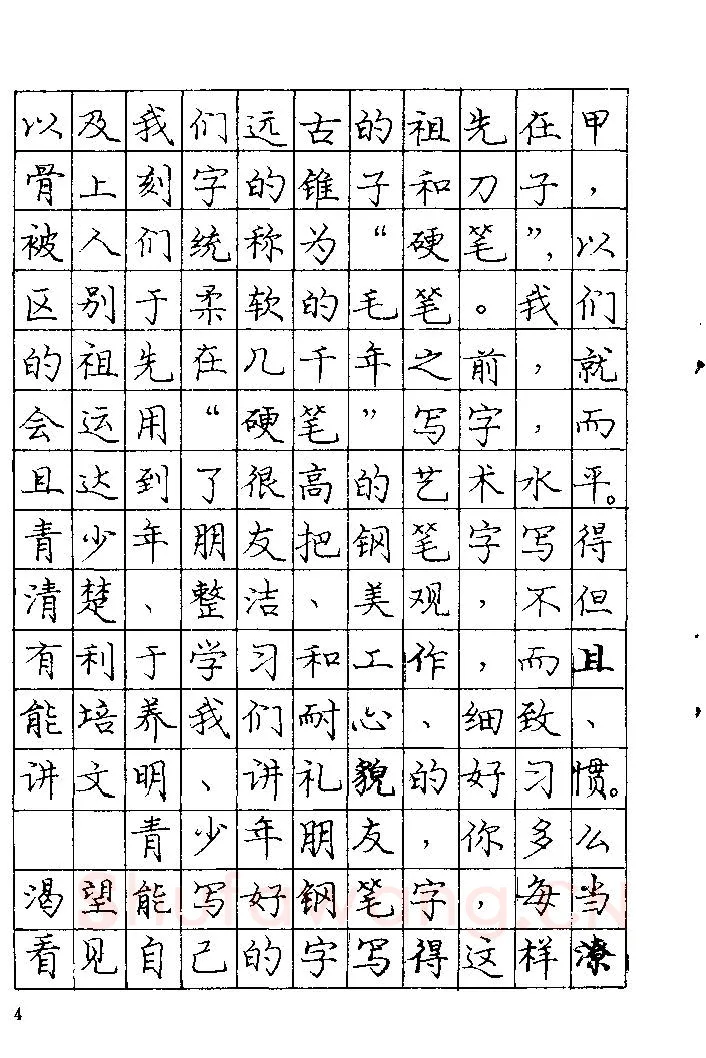 以及我们远古的祖先在甲
骨上刻字的锥子和刀子，
被人们统称为“硬笔”，以
区别于柔软的毛笔。我们
的祖先在几千年之前，就
会运用“硬笔”写字，而
且达到了很高的艺术水平。
青少年朋友把钢笔字写得
清楚、整洁、美观，不但
有利于学习和工作，而且
能培养我们耐心、细致、
讲文明、讲礼貌的好习惯。
青少年朋友，你多么
渴望能写好钢笔字，每当
看见自己的字写得这样潦
Shufawang.CN
4